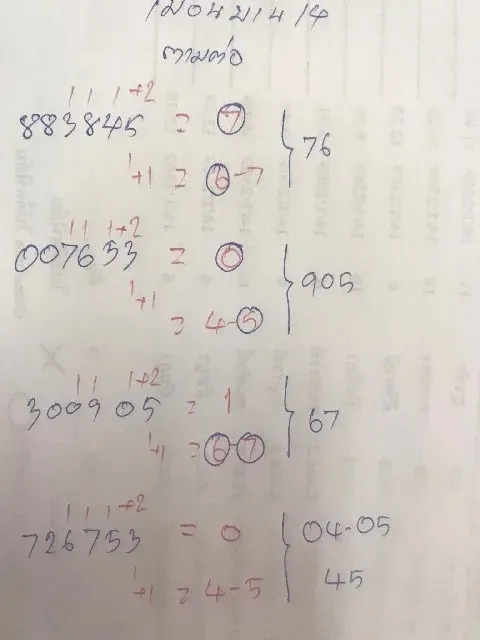 ตามต่อ
1 1 1+2
883845 = 7
1+1 = 6-7
76
1 1 1+2
007653 = 0
1+1
= 4-5
905
1 1 1+2
300905 = 1
1+1 = 6-7
67
1 1 1+2
726753 = 0
1+1 = 4-5
04-05
45